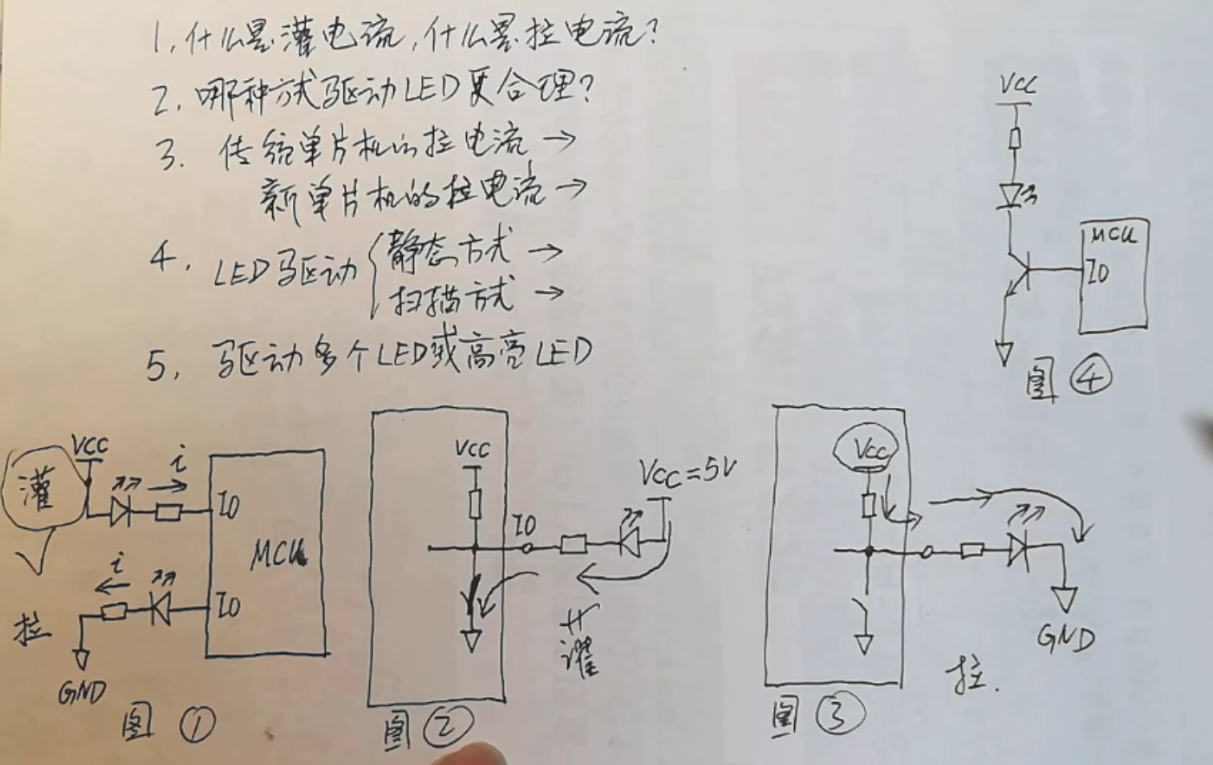 1, 什么是灌电流, 什么是拉电流?
2. 哪种方式驱动LED更合理?
3. 传统单片机的拉电流→
新单片机的拉电流→
4. LED驱动{静态方式→
扫描方式→
5. 驱动多个LED或高亮LED
VCC
MCU
IO
图④
灌
VCC
i
IO
MCU
i
IO
拉
GND
图①
VCC
IO
VCC=5V
灌
图②
VCC
GND
拉.
图③